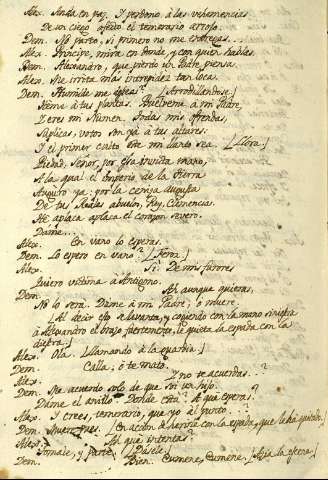 Alex. Anda en paz. Y perdono à las vehemencias
De un ciego afecto el temerario arrojo.
Dem. No parto, si primero no me entregas...
Alex. Principe, mira en donde, y con quien hablas.
Dem. Alexandro, que pierdo un Padre piensa.
Alex. Me irrita más intrepidez tan loca.
Dem. Humilde me deseas? [Arrodillandose.]
à tus plantas. Buelveme à mi Padre,
Y eres mi Numen. Todas mis ofrendas,
Suplicas, votos son yà à tus altares.
Y el primer culto este mi llanto sea. [Llora.]
Piedad, Señor, por esa invicta mano,
A la qual el Imperio de la tierra
Auguro ya: por la ceniza augusta
De tus Reales abuelos, Rey, Clemencia.
Aplaca aplaca el corazon severo.
Dame...
Alex. En vano lo esperas.
Dem. Lo espero en vano? [Feroz.]
Alex. Si. De mis furores
Quiero victima à Antigono.
Dem. Ah aunque quieras,
No lo será. Dame à mi Padre, ò muere.
[Al decir esto se levanta, y cogiendo con la mano siniestra
à Alexandro el brazo fuertemente, le quita la espada con la
diestra.]
Alex. Ola. [Llamando à la guardia.]
Dem. Calla; ò te mato.
Alex. Y no te acuerdas..?
Dem. Me acuerdo solo de que soi un hijo.
Dame el anillo. Donde está? A qué esperas?
Alex. Y crees, temerario, que yo al punto...
Dem. Muere pues. [En accion de herirle con la espada, que le há quitado.]
Alex. Ah qué intentas?
Tomale, y parte. [Dasele.]
Dem. Bien. Eumene, Eumene. [Azia la escena.]